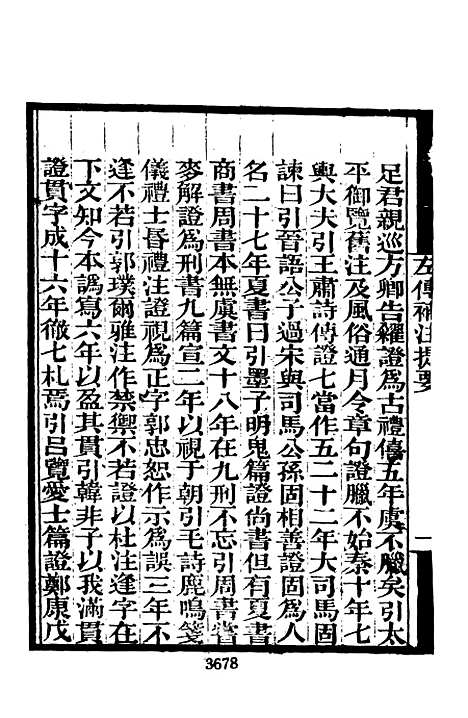 左傳補注提要 一
足君親巡方卿告糴證爲古禮僖五年虞不臘矣引太
平御覽舊注及風俗通月令章句證臘不始秦十年七
輿大夫引王肅詩傳證七當作五二十二年大司馬固
諫曰引晉語公子過宋與司馬公孫固相善證固爲人
名二十七年夏書曰引墨子明鬼篇證尚書但有夏書
商書周書本無虞書文十八年在九刑不忘引周書嘗
麥解證爲刑書九篇宣二年以視于朝引毛詩鹿鳴箋
儀禮士昏禮注證視爲正字郭忠恕作示爲誤三年不
逢不若引郭璞爾雅注作禁禦不若證以杜注逢字在
下文知今本譌寫六年以盈其貫引韓非子以我滿貫
證貫字成十六年徹七札焉引呂覽愛士篇證鄭康戊
3678